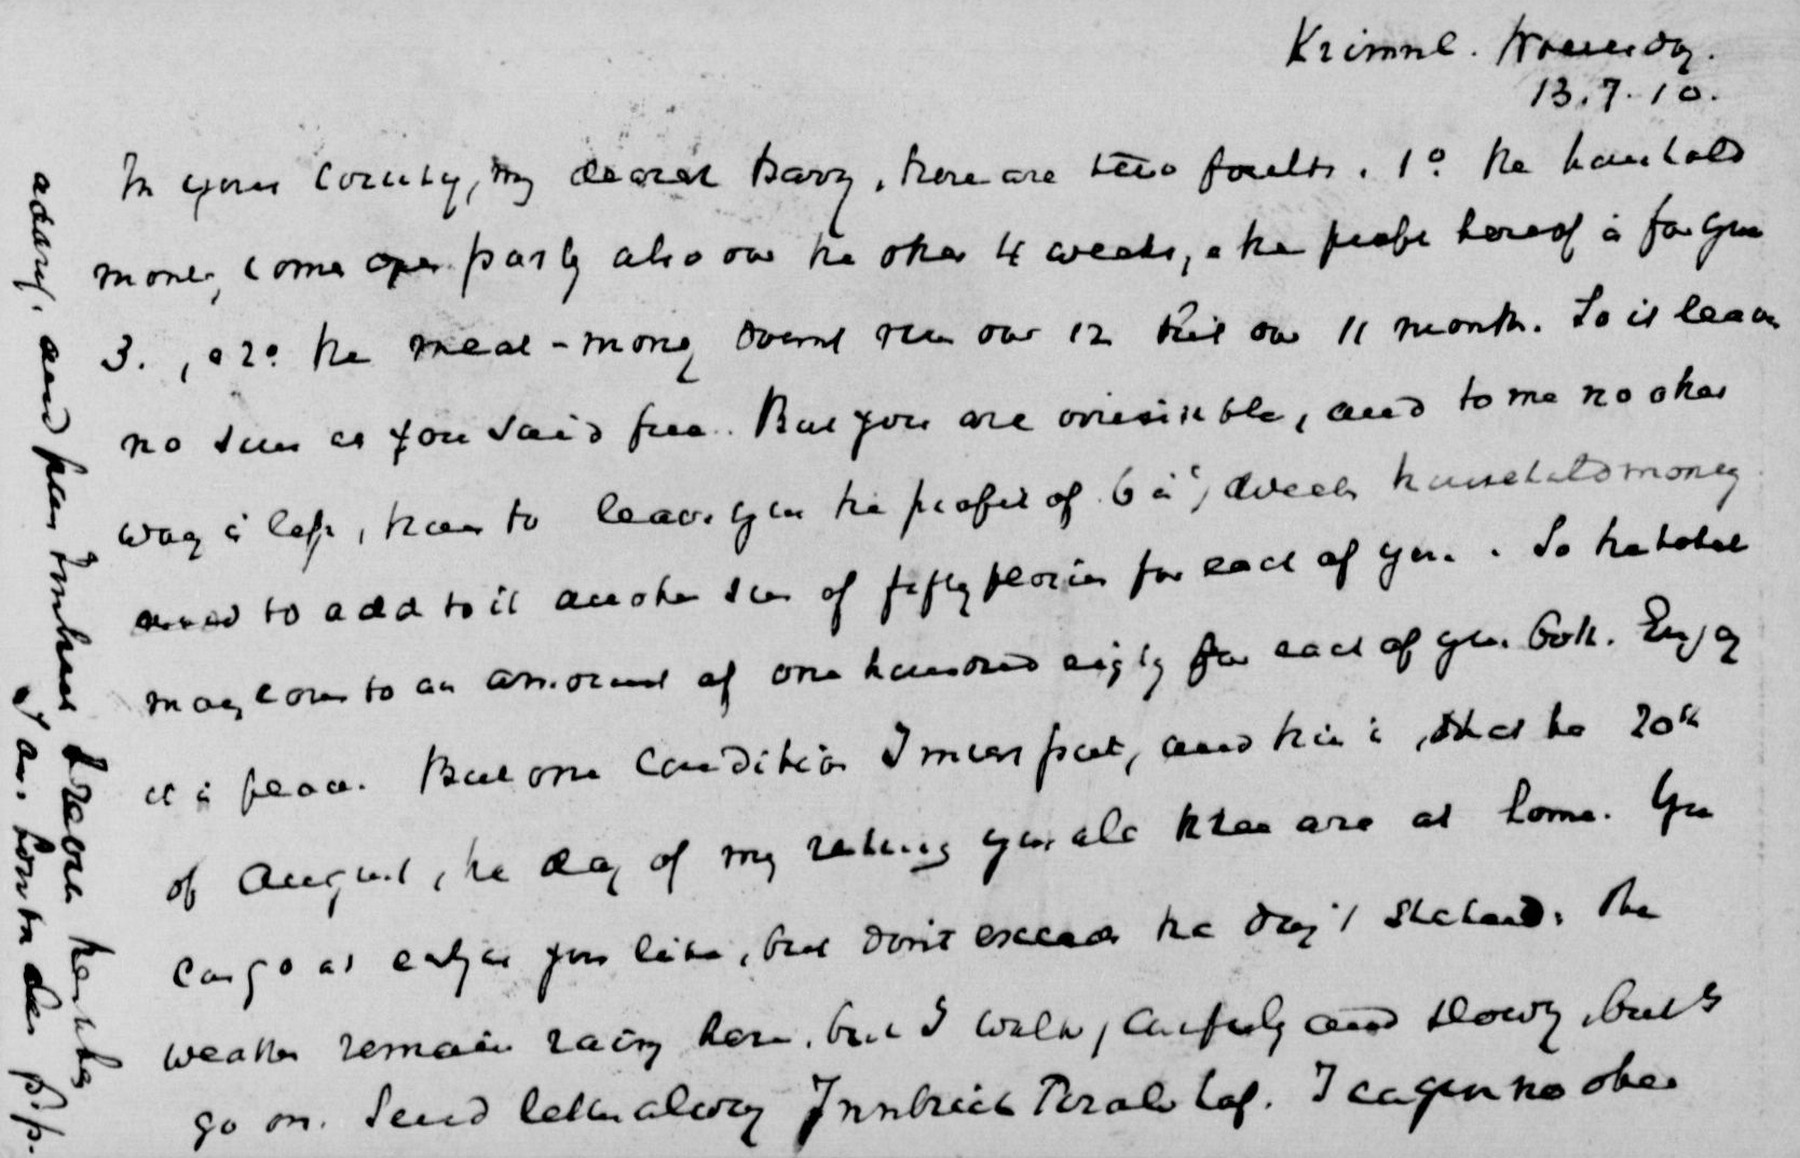 Krimml. Wednesday.
13.7.10.
In your counting, my dearest Davy, there are two faults. 1º the household
money comes open partly also over the other 4 weeks, a the profit hereof is for you
3., a 2º the meat-money doesnt run over 12 but over 11 month. So it leaves
no sum as you said free. But you are irresistible, and to me no other
way is left, than to leave you the profit of 6 weeks householdmoney
and to add to it another sum of fifty florins for each of you. So the total
may come to an amount of one hundred eighty for each of you both. Enjoy
it in peace. But one condition I must put, and this is, that the 20th
of August, the day of my retting you all three are at home. You
can go as early as you like, but don't exceed the day's stated. The
weather remains rainy here, but I walk, carefully and slowly, but I
go on. Send letters always Innsbruck Tirolerhof. I can give no other
address, and from Innsbruck I travel
I am, South der p.p.